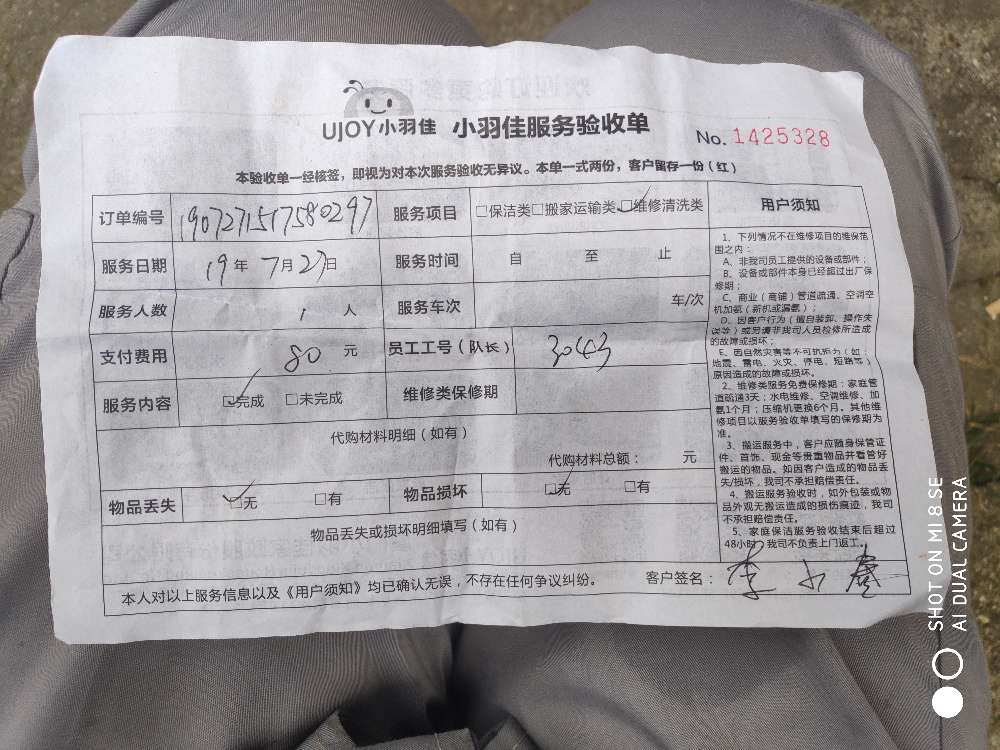 UJOY小羽佳 小羽佳服务验收单 No. 1425328
本验收单一经核签，即视为对本次服务验收无异议。本单一式两份，客户留存一份（红）
订单编号 190727151758029​7 服务项目 □保洁类□搬家运输类☑维修清洗类
服务日期 19年 7月27日 服务时间 自 至 止
服务人数 1 人 服务车次 车/次
支付费用 80 元 员工工号（队长） 3043
服务内容 ☑完成 □未完成 维修类保修期
代购材料明细（如有）
代购材料总额： 元
物品丢失 ☑无 □有 物品损坏 ☑无 □有
物品丢失或损坏明细填写（如有）
本人对以上服务信息以及《用户须知》均已确认无误，不存在任何争议纠纷。 客户签名：
用户须知
1、下列情况不在维修项目的维保范
围之内：
A、非我司员工提供的设备或部件；
B、设备或部件本身已经超过出厂保
修期；
C、商业（商铺）管道疏通、空调空
机加氨（新机或漏氨）；
D、因客户行为（擅自装卸、操作失
误等）或另请非我司人员检修所造成
的故障或损坏；
E、因自然灾害等不可抗拒力（如：
地震、雷电、火灾、停电、短路等）
原因造成的故障或损坏。
2、维修类服务免费保修期：家庭管
道疏通3天；水电维修、空调维修、加
氨1个月；压缩机更换6个月。其他维
修项目以服务验收单填写的保修期为
准。
3、搬运服务中，客户应随身保管证
件、首饰、现金等贵重物品并看管好
搬运的物品。如因客户造成的物品丢
失/损坏，我司不承担赔偿责任。
4、搬运服务验收时，如外包装或物
品外观无搬运造成的损伤痕迹，我司
不承担赔偿责任。
5、家庭保洁服务验收结束后超过
48小时，我司不负责上门返工。
SHOT ON MI 8 SE
AI DUAL CAMERA